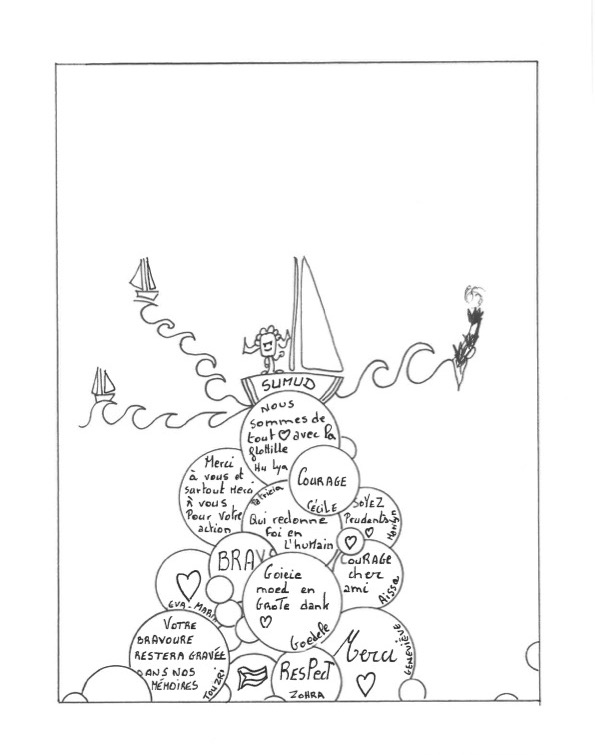 SUMUD
Nous
sommes de
tout ♡ avec la
flottille
Hu Lya
Courage
Cécile
Merci
à vous et
surtout Merci
à vous
Pour votre
action
Patricia
Qui redonne
foi en
l'humain
SOYEZ
Prudents
♡
Marilyn
♡
BRAVO
CouRAGe
cher
ami
Aïssa
♡
EVA-MARIA
Goieie
moed en
GroTe dank
♡
Goedele
VOTRE
BRAVOURE
RESTERA GRAVÉE
DANS NOS
MÉMOIRES
TOUZRI
RESPecT
ZOHRA
Merci
♡
GENEVIÈVE